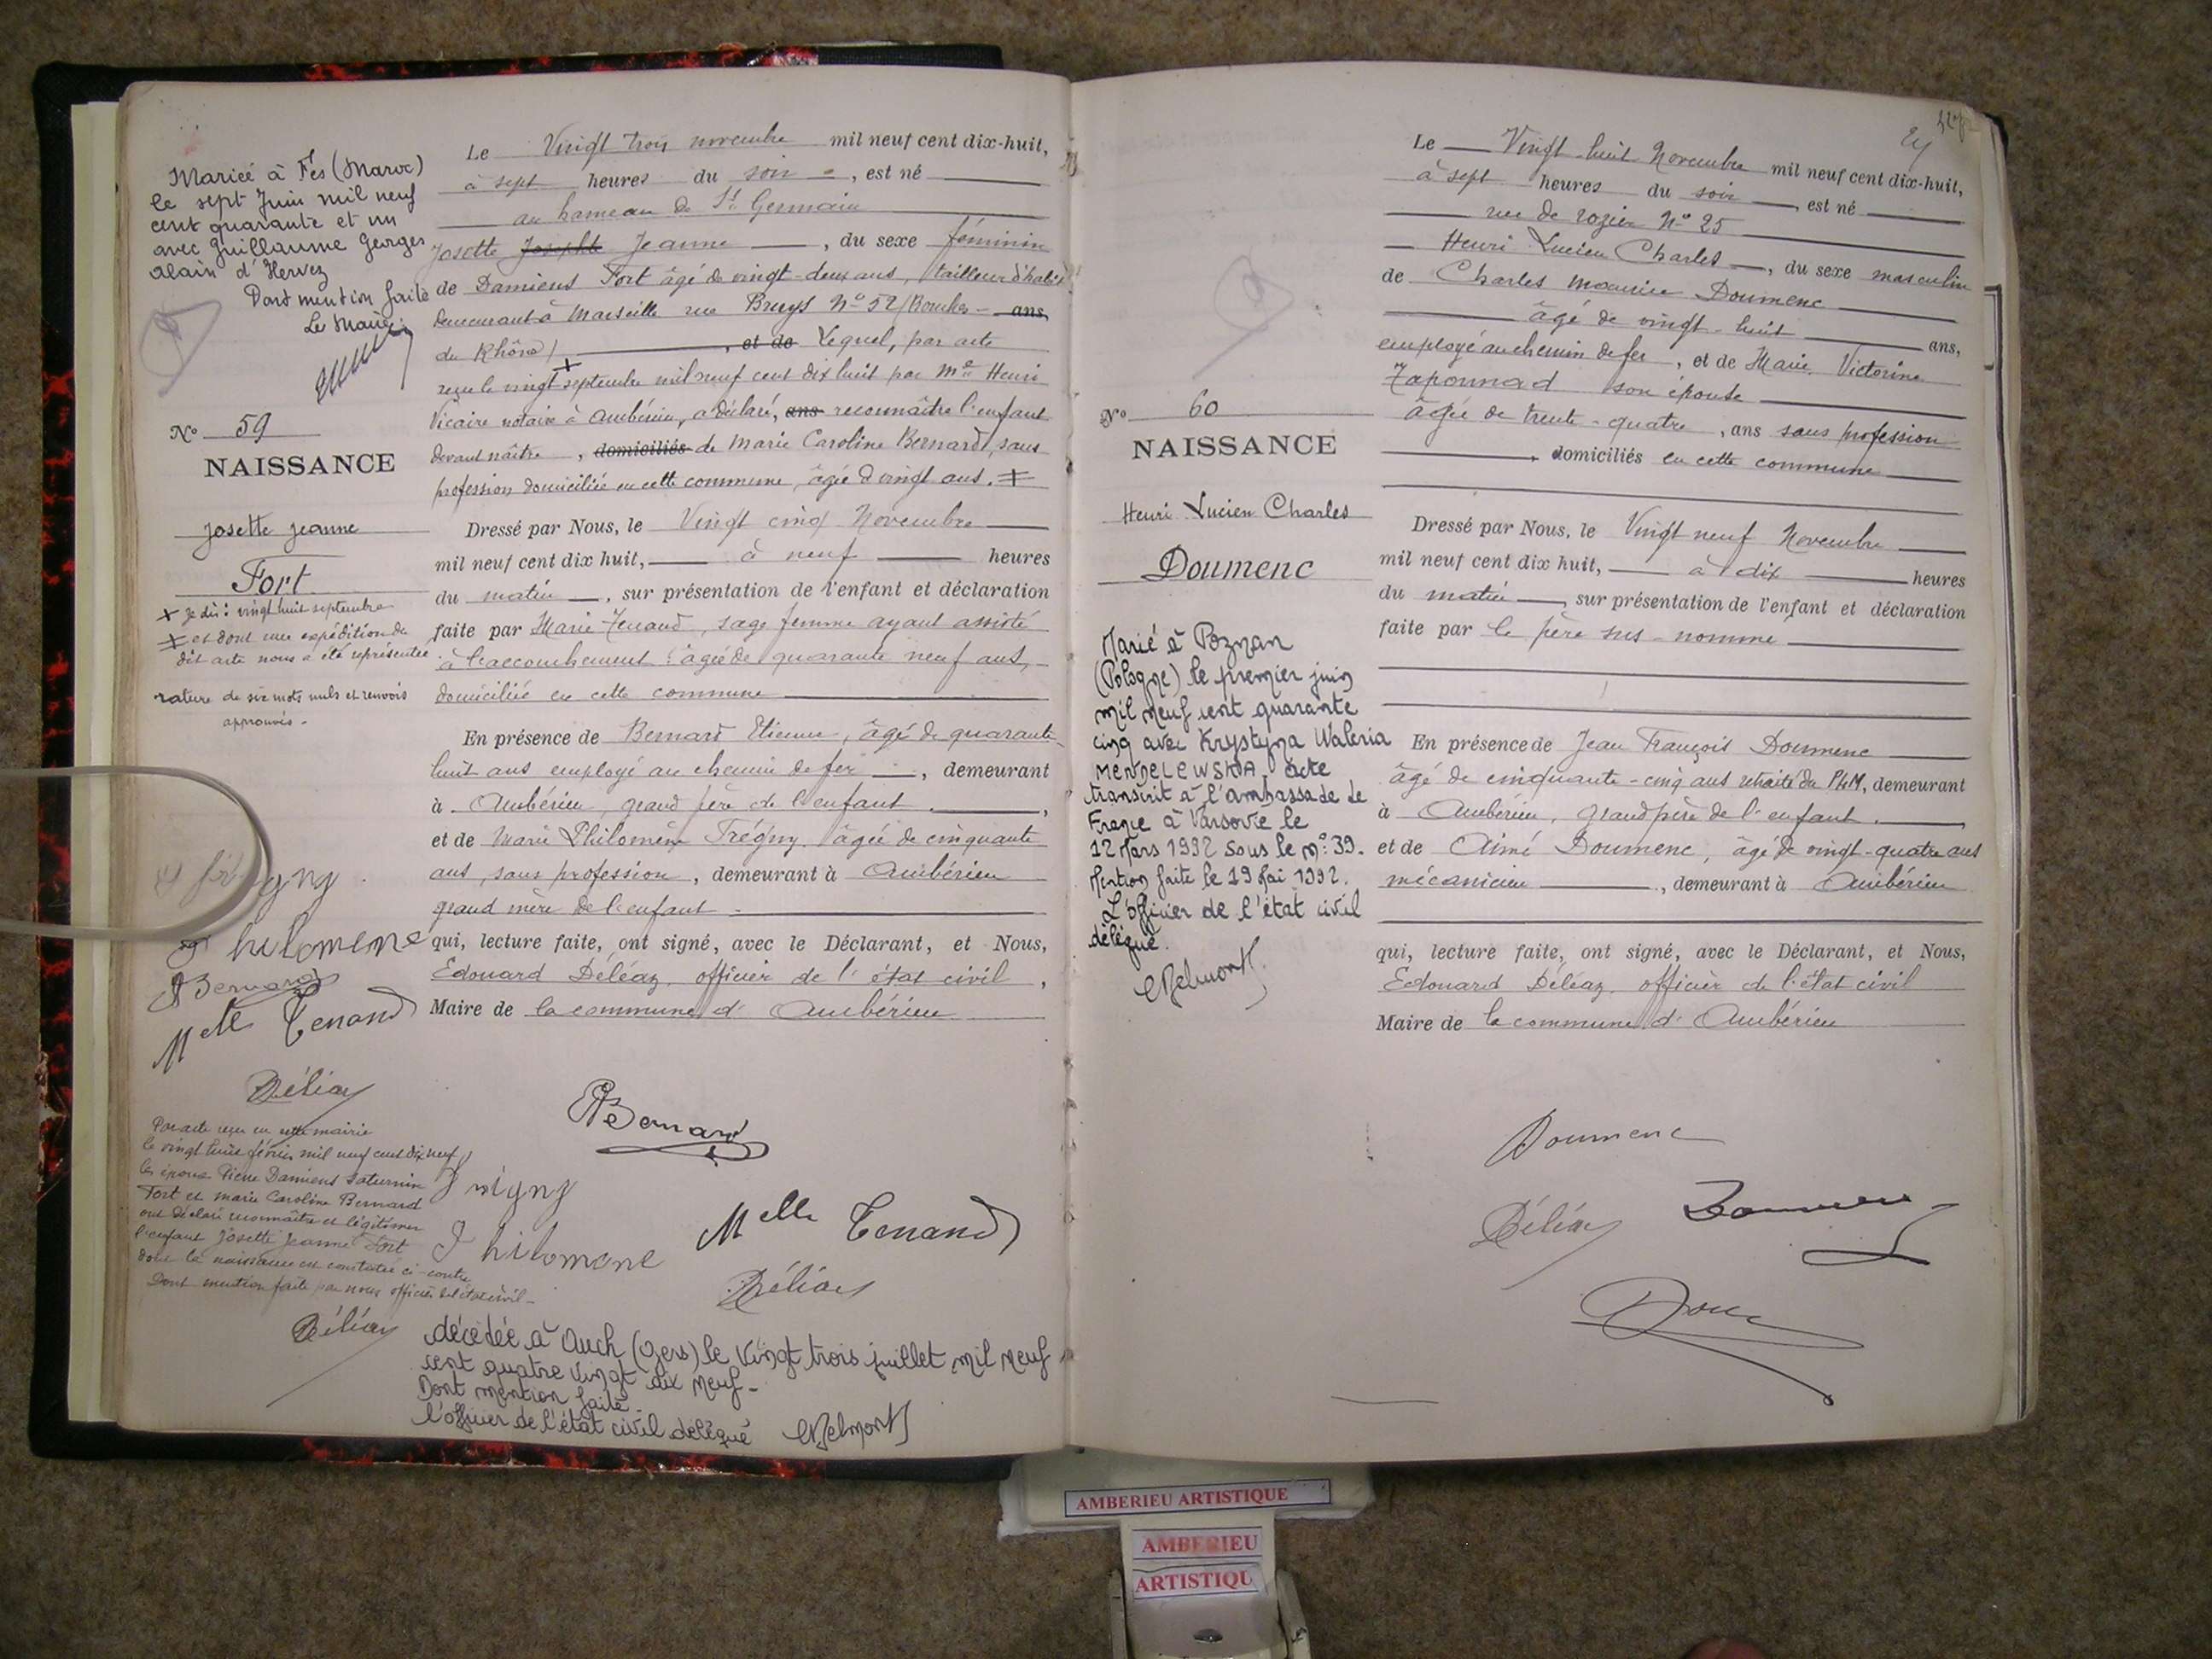 Mariée à Fès (Maroc)
le sept Juin mil neuf
cent quarante et un
avec Guillaume Georges
Alain d'Hervez
Dont mention faite
Le Maire,
N° 59
NAISSANCE
Josette Jeanne
Fort
+ je dis : vingt huit septembre
‡ et dont une expédition du
dit acte nous a été représentée
rature de six mots nuls et renvois
approuvés -
gny
Philomène
Bernard
Melle Tenand
Déléaz
Par acte reçu en cette mairie
le vingt huit février mil neuf cent dix neuf,
les époux Pierre Damiens Saturnin
Fort et Marie Caroline Bernard
ont déclaré reconnaître et légitimer
l'enfant Josette Jeanne Fort
dont la naissance est constatée ci-contre
Dont mention faite par nous officier de l'état civil -
Déléaz
Le Vingt trois novembre mil neuf cent dix-huit,
à sept heures du soir, est né
au hameau de St Germain
Josette Josephte Jeanne, du sexe féminin
de Damiens Fort âgé de vingt-deux ans, tailleur d'habits
demeurant à Marseille rue Bruys N° 52 (Bouches- ans,
du Rhône), et de Lequel, par acte
reçu le vingt + septembre mil neuf cent dix huit par Me Henri
Vicaire notaire à Ambérieu, a déclaré, ans reconnaître l'enfant
devant naître, domiciliés de Marie Caroline Bernard, sans
profession domiciliée en cette commune, âgée d vingt ans. ‡
Dressé par Nous, le Vingt cinq Novembre
mil neuf cent dix huit, à neuf heures
du matin, sur présentation de l'enfant et déclaration
faite par Marie Tenand, sage femme ayant assisté
à l'accouchement : âgée de quarante neuf ans,
domiciliée en cette commune
En présence de Bernard Etienne, âgé de quarante-
huit ans employé au chemin de fer, demeurant
à Ambérieu, grand père de l'enfant,
et de Marie Philomène Trégny, âgée de cinquante
ans, sans profession, demeurant à Ambérieu
grand mère de l'enfant -
qui, lecture faite, ont signé, avec le Déclarant, et Nous,
Edouard Déléaz, officier de l'état civil,
Maire de la commune d'Ambérieu
Bernard
Philomene
Melle Tenand
Déléaz
décédée à Auch (Gers) le vingt trois juillet mil neuf
cent quatre vingt dix neuf -
Dont mention faite.
l'officier de l'état civil délégué
N° 60
NAISSANCE
Henri Lucien Charles
Doumenc
Marié à Poznan
(Pologne) le premier juin
mil neuf cent quarante
cinq avec Krystyna Waleria
MENDELEWSKA, acte
transcrit à l'ambassade de
France à Varsovie le
12 Mars 1992 sous le n° 39.
Mention faite le 19 Mai 1992.
L'officier de l'état civil
délégué.
Le Vingt-huit Novembre mil neuf cent dix-huit,
à sept heures du soir, est né
rue de rozier N° 25
Henri Lucien Charles, du sexe masculin
de Charles Maurice Doumenc
âgé de vingt-huit ans,
employé au chemin de fer, et de Marie Victorine
Taponnad son épouse
âgée de trente-quatre, ans sans profession
, domiciliés en cette commune
Dressé par Nous, le Vingt neuf Novembre
mil neuf cent dix huit, à dix heures
du matin, sur présentation de l'enfant et déclaration
faite par le père sus-nommé
En présence de Jean François Doumenc
âgé de cinquante-cinq ans retraité du PLM, demeurant
à Ambérieu, grand père de l'enfant.
et de Aimé Doumenc, âgé de vingt-quatre ans
mécanicien, demeurant à Ambérieu
qui, lecture faite, ont signé, avec le Déclarant, et Nous,
Edouard Déléaz, officier de l'état civil
Maire de la commune d'Ambérieu
Doumenc
Déléaz
AMBERIEU ARTISTIQUE
AMBERIEU
ARTISTIQU